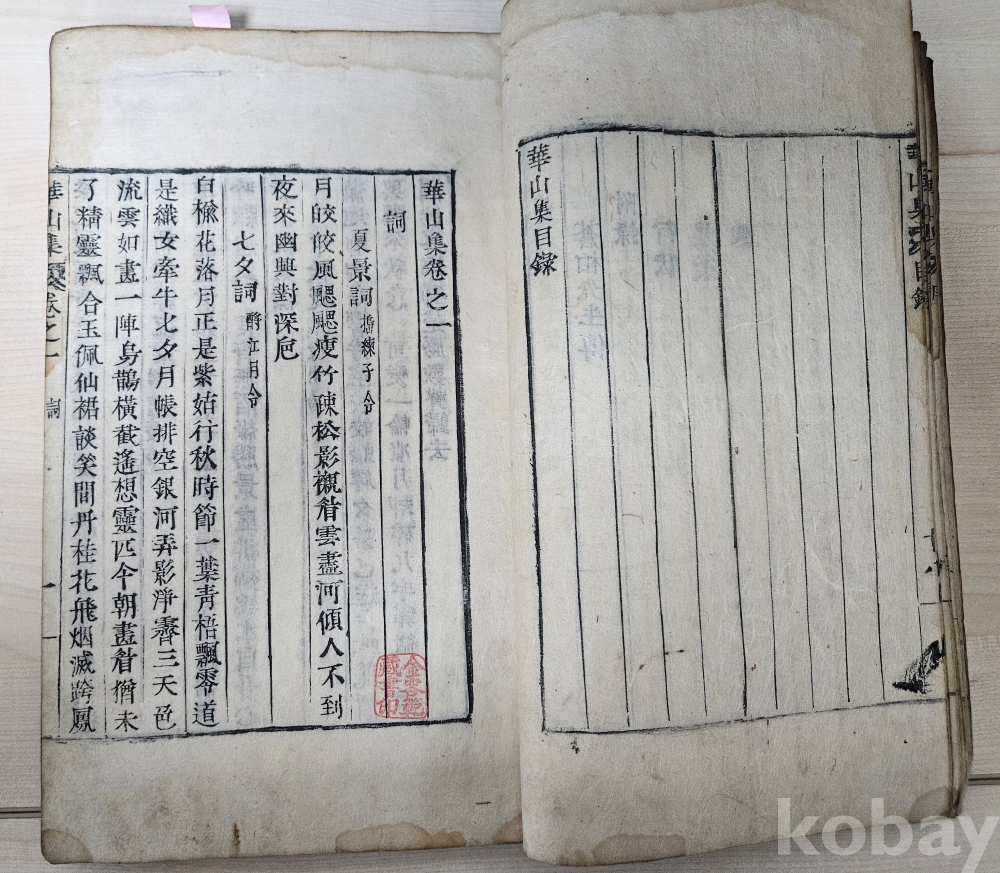 華山集目錄
華山集卷之一
詞
夏景詞 擣練子令
月皎皎風颸颸瘦竹疎松影襯眉雲盡河傾人不到
夜來幽興對深巵
七夕詞 酹江月令
白楡花落月正是紫姑行秋時節一葉靑梧飄零道
是織女牽牛七夕月帳排空銀河弄影淨霽三天色
流雲如畫一陣烏鵲橫截遙想靈匹今朝畫眉猶未
了精靈飄合玉佩仙裙談笑間丹桂花飛烟滅跨鳳
華山集
卷之一
詞
一
藏書印
kobay